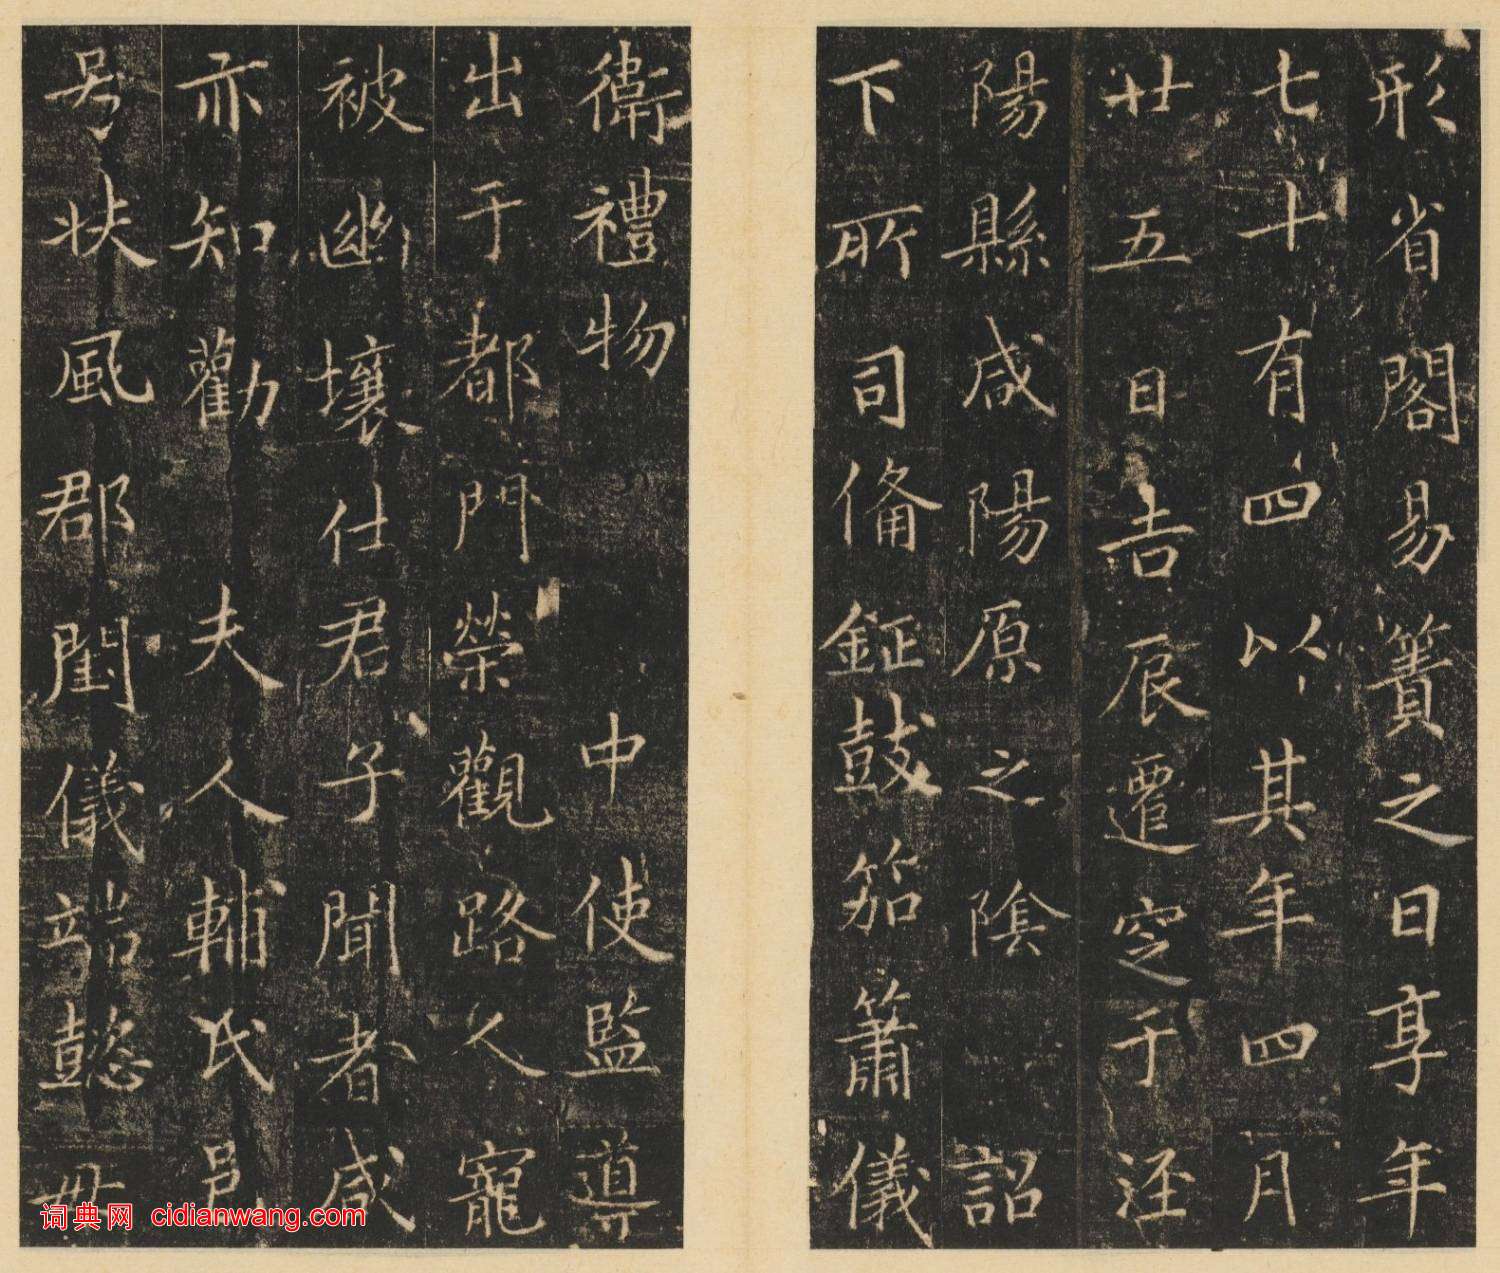 形省閣易簀之日享年
七十有四以其年四月
廿五日吉辰遷窆于涇
陽縣咸陽原之陰詔
下所司俻鉦鼓笳簫儀
衛禮物中使監導
出于都門榮觀路人寵
被幽壤仕君子聞者咸
亦知勸夫人輔氏邑
号扶風郡閨儀端懿毋
词典网 cidianwang.com